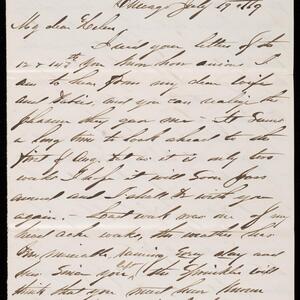 Chicago July 19th /69
My dear Helen
I recd your letters of the
12 & 14th. You know how anxious I
am to hear from my dear wife
and babies, and you can realize the
pleasure they gave me - It seems
a long time to look ahead to the
first of Aug. but as it is only two
weeks I hope it will soon pass
around and I shall be with you
again. - Last week was one of my
hard work weeks, the weather has
been miserable, raining every day and
now Susan you the Shrinkles will
think that you must have